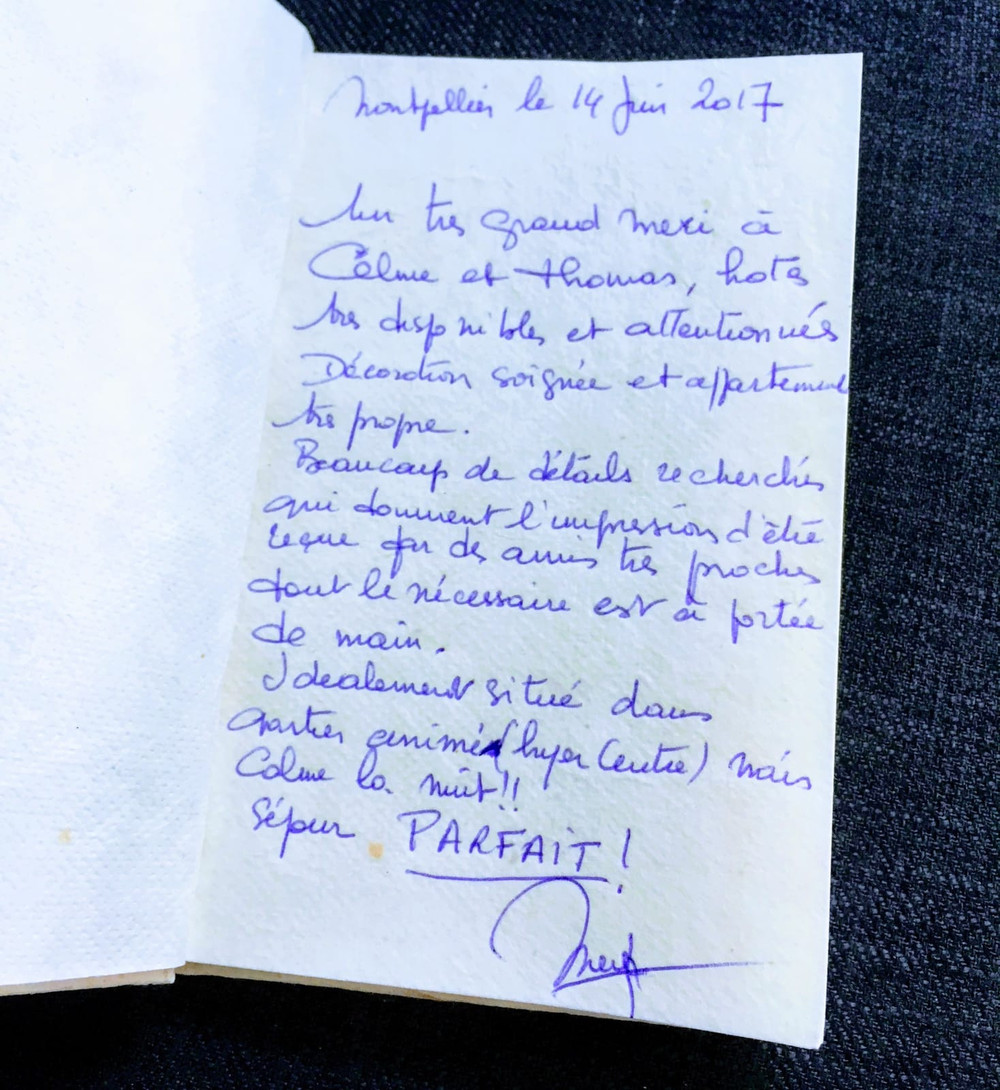 Montpellier le 14 Juin 2017
Un très grand merci à
et Thomas, hotes
très disponibles et attentionnés
Décoration soignée et appartement
très propre.
Beaucoup de détails recherchés
qui donnent l'impression d'être
reçue par des amis très proches
tout le nécessaire est à portée
de main.
Idealement situé dans
quartier animé (hyper Centre) mais
Calme la nuit!!
Séjour PARFAIT !